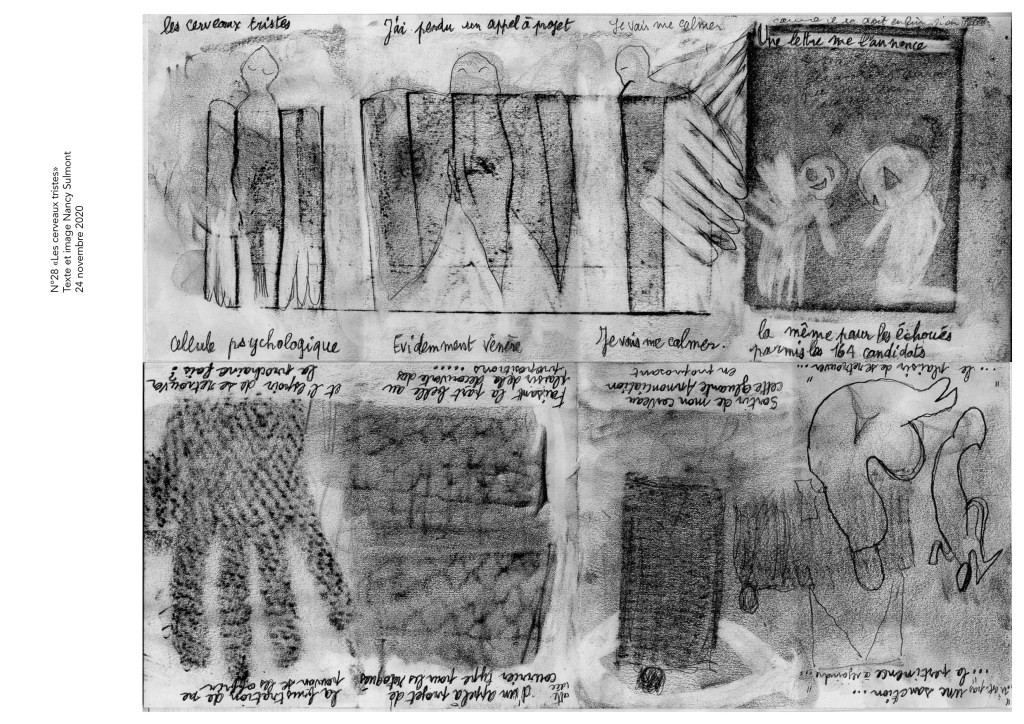 N°28 «Les cerveaux tristes»
Texte et image Nancy Sulmont
24 novembre 2020
les cerveaux tristes
J'ai perdu un appel à projet
Je vais me calmer
comme il se doit
Une lettre me l'annonce
cellule psychologique
Evidemment vénère
Je vais me calmer.
la même pour les échoués
parmis les 164 candidats
"... une sanction...
... la pertinence à rejoindre... "
"
... le plaisir de se retrouver... "
Sortir de mon cerveau
cette gluante Annonciation
en proposant
cette idée
d'un appel à projet de
courrier type pour les retoqués
Faisant la part belle au
plaisir de la découverte des
propositions ......
la frustration de ne
pouvoir se les offrir
et l'espoir de se retrouver
la prochaine fois?